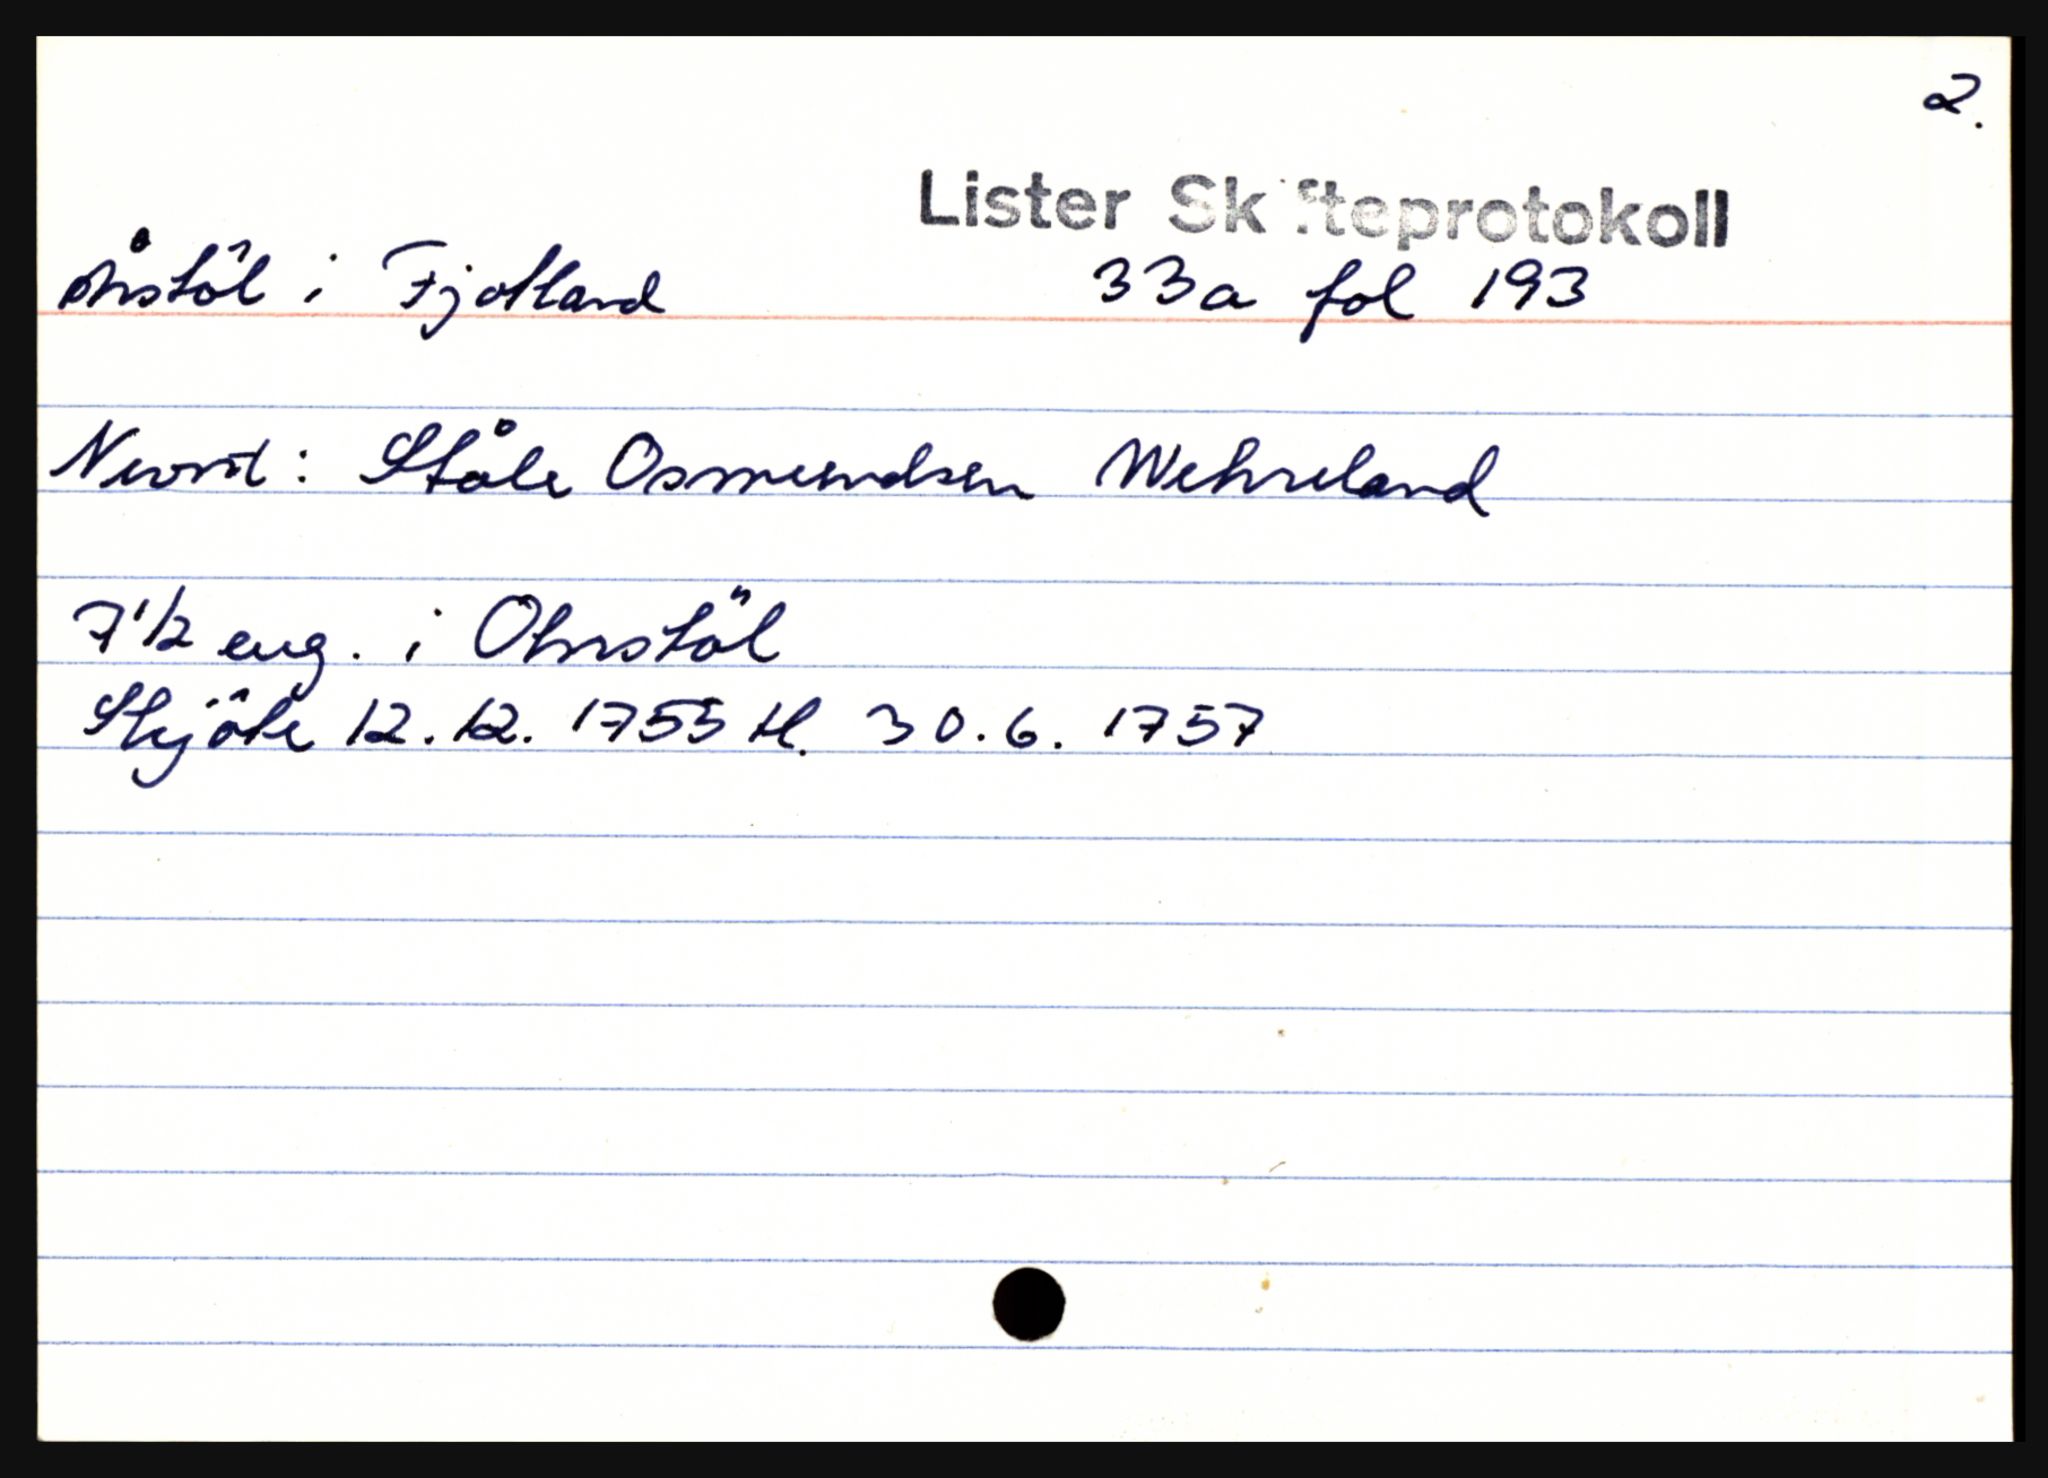 2.
Lister Skifteprotokoll
Århstöl i Fjotland 33a fol 193
Nevnt: Ståle Osmundsen Wehreland
7 1/2 eng. i Ohrstöl
Skjöte 12.12.1755 tl. 30.6.1757